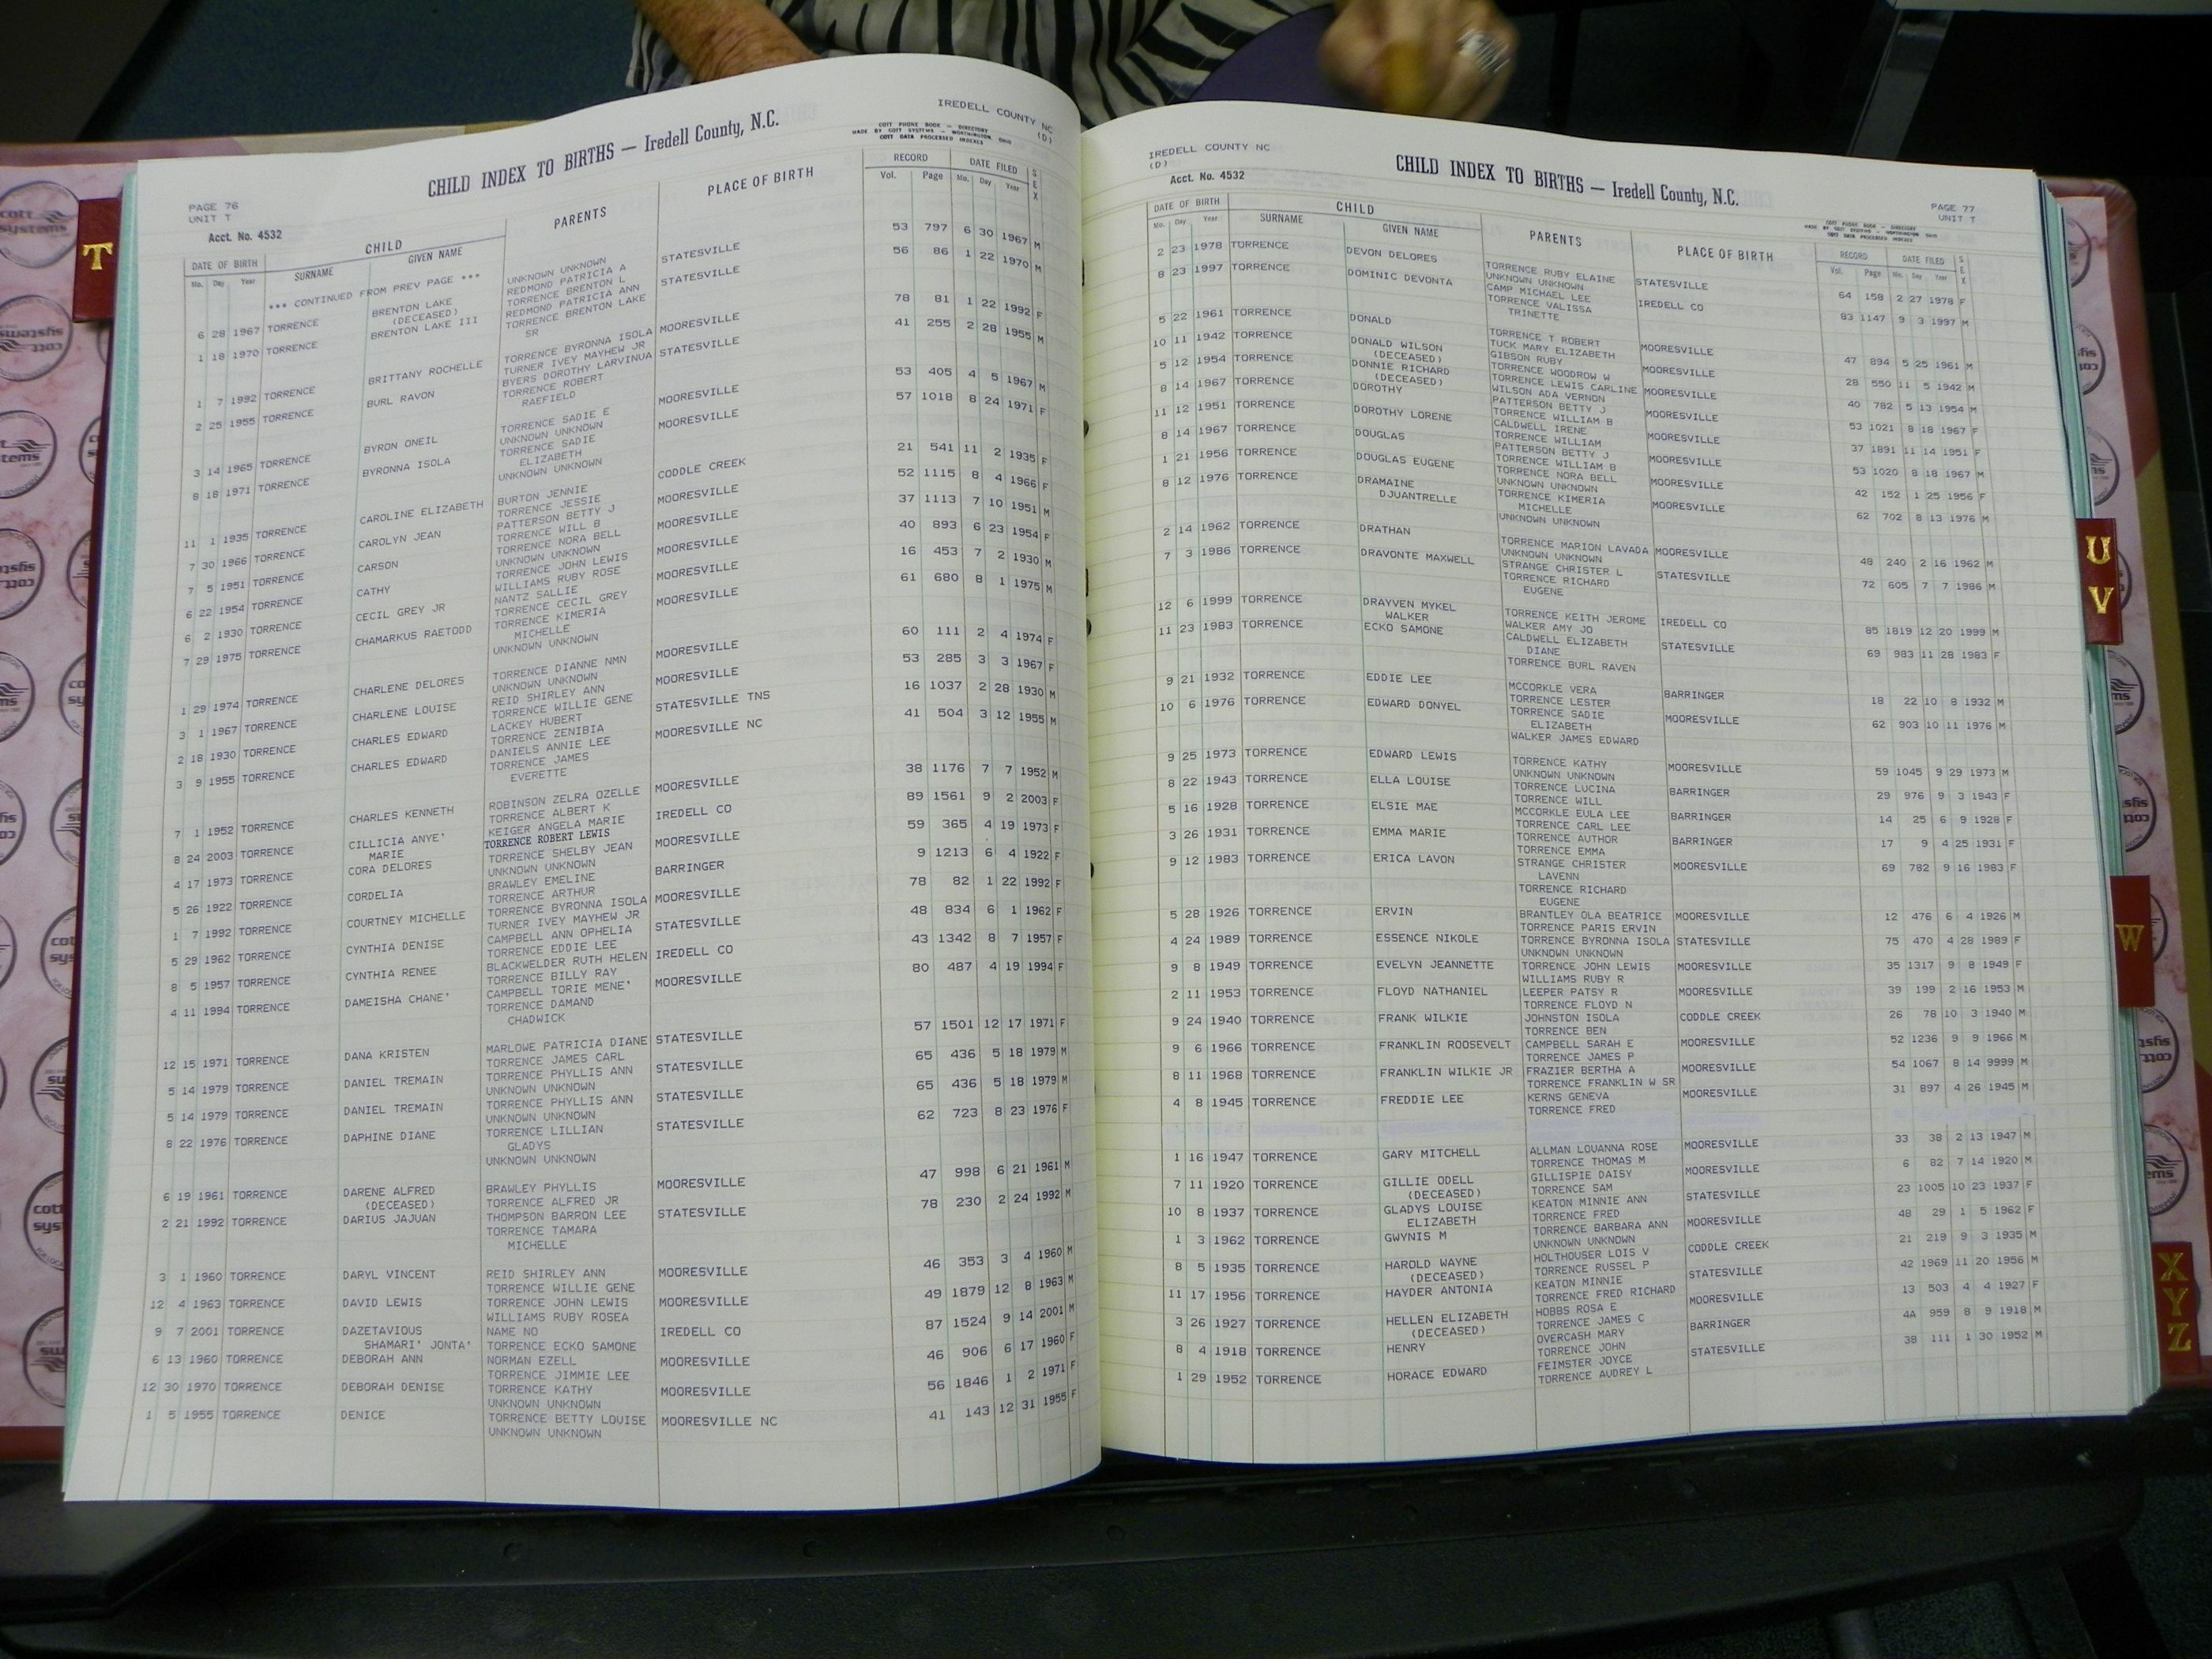 IREDELL COUNTY NC
(D)
COTT PHONE BOOK — DIRECTORY
MADE BY COTT SYSTEMS — WORTHINGTON, OHIO
COTT DATA PROCESSED INDEXES
CHILD INDEX TO BIRTHS — Iredell County, N.C.
PAGE 76
UNIT T
Acct. No. 4532
DATE OF BIRTH CHILD PARENTS PLACE OF BIRTH RECORD DATE FILED SEX
Mo. Day Year SURNAME GIVEN NAME Vol. Page Mo. Day Year
*** CONTINUED FROM PREV PAGE *** UNKNOWN UNKNOWN
6 28 1967 TORRENCE BRENTON LAKE REDMOND PATRICIA A STATESVILLE 53 797 6 30 1967 M
(DECEASED) TORRENCE BRENTON L
1 18 1970 TORRENCE BRENTON LAKE III REDMOND PATRICIA ANN STATESVILLE 56 86 1 22 1970 M
TORRENCE BRENTON LAKE
SR
1 7 1992 TORRENCE BRITTANY ROCHELLE TORRENCE BYRONNA ISOLA MOORESVILLE 78 81 1 22 1992 F
TURNER IVEY MAYHEW JR
2 25 1955 TORRENCE BURL RAVON BYERS DOROTHY LARVINUA STATESVILLE 41 255 2 28 1955 M
TORRENCE ROBERT
RAEFIELD
3 14 1965 TORRENCE BYRON ONEIL TORRENCE SADIE E MOORESVILLE 53 405 4 5 1967 M
UNKNOWN UNKNOWN
8 18 1971 TORRENCE BYRONNA ISOLA TORRENCE SADIE MOORESVILLE 57 1018 8 24 1971 F
ELIZABETH
UNKNOWN UNKNOWN
11 1 1935 TORRENCE CAROLINE ELIZABETH BURTON JENNIE CODDLE CREEK 21 541 11 2 1935 F
TORRENCE JESSIE
7 30 1966 TORRENCE CAROLYN JEAN PATTERSON BETTY J MOORESVILLE 52 1115 8 4 1966 F
TORRENCE WILL B
7 5 1951 TORRENCE CARSON TORRENCE NORA BELL MOORESVILLE 37 1113 7 10 1951 M
UNKNOWN UNKNOWN
6 22 1954 TORRENCE CATHY TORRENCE JOHN LEWIS MOORESVILLE 40 893 6 23 1954 F
WILLIAMS RUBY ROSE
6 2 1930 TORRENCE CECIL GREY JR NANTZ SALLIE MOORESVILLE 16 453 7 2 1930 M
TORRENCE CECIL GREY
7 29 1975 TORRENCE CHAMARKUS RAETODD TORRENCE KIMERIA MOORESVILLE 61 680 8 1 1975 M
MICHELLE
UNKNOWN UNKNOWN
1 29 1974 TORRENCE CHARLENE DELORES TORRENCE DIANNE NMN MOORESVILLE 60 111 2 4 1974 F
UNKNOWN UNKNOWN
3 1 1967 TORRENCE CHARLENE LOUISE REID SHIRLEY ANN MOORESVILLE 53 285 3 3 1967 F
TORRENCE WILLIE GENE
2 18 1930 TORRENCE CHARLES EDWARD LACKEY HUBERT STATESVILLE TNS 16 1037 2 28 1930 M
TORRENCE ZENIBIA
3 9 1955 TORRENCE CHARLES EDWARD DANIELS ANNIE LEE MOORESVILLE NC 41 504 3 12 1955 M
TORRENCE JAMES
EVERETTE
7 1 1952 TORRENCE CHARLES KENNETH ROBINSON ZELRA OZELLE MOORESVILLE 38 1176 7 7 1952 M
TORRENCE ALBERT K
8 24 2003 TORRENCE CILLICIA ANYE' KEIGER ANGELA MARIE IREDELL CO 89 1561 9 2 2003 F
MARIE TORRENCE ROBERT LEWIS
4 17 1973 TORRENCE CORA DELORES TORRENCE SHELBY JEAN MOORESVILLE 59 365 4 19 1973 F
UNKNOWN UNKNOWN
5 26 1922 TORRENCE CORDELIA BRAWLEY EMELINE BARRINGER 9 1213 6 4 1922 F
TORRENCE ARTHUR
1 7 1992 TORRENCE COURTNEY MICHELLE TORRENCE BYRONNA ISOLA MOORESVILLE 78 82 1 22 1992 F
TURNER IVEY MAYHEW JR
5 29 1962 TORRENCE CYNTHIA DENISE CAMPBELL ANN OPHELIA STATESVILLE 48 834 6 1 1962 F
TORRENCE EDDIE LEE
8 5 1957 TORRENCE CYNTHIA RENEE BLACKWELDER RUTH HELEN IREDELL CO 43 1342 8 7 1957 F
TORRENCE BILLY RAY
4 11 1994 TORRENCE DAMEISHA CHANE' CAMPBELL TORIE MENE' MOORESVILLE 80 487 4 19 1994 F
TORRENCE DAMAND
CHADWICK
12 15 1971 TORRENCE DANA KRISTEN MARLOWE PATRICIA DIANE STATESVILLE 57 1501 12 17 1971 F
TORRENCE JAMES CARL
5 14 1979 TORRENCE DANIEL TREMAIN TORRENCE PHYLLIS ANN STATESVILLE 65 436 5 18 1979 M
UNKNOWN UNKNOWN
5 14 1979 TORRENCE DANIEL TREMAIN TORRENCE PHYLLIS ANN STATESVILLE 65 436 5 18 1979 M
UNKNOWN UNKNOWN
8 22 1976 TORRENCE DAPHINE DIANE TORRENCE LILLIAN STATESVILLE 62 723 8 23 1976 F
GLADYS
UNKNOWN UNKNOWN
6 19 1961 TORRENCE DARENE ALFRED BRAWLEY PHYLLIS MOORESVILLE 47 998 6 21 1961 M
(DECEASED) TORRENCE ALFRED JR
2 21 1992 TORRENCE DARIUS JAJUAN THOMPSON BARRON LEE STATESVILLE 78 230 2 24 1992 M
TORRENCE TAMARA
MICHELLE
3 1 1960 TORRENCE DARYL VINCENT REID SHIRLEY ANN MOORESVILLE 46 353 3 4 1960 M
TORRENCE WILLIE GENE
12 4 1963 TORRENCE DAVID LEWIS TORRENCE JOHN LEWIS MOORESVILLE 49 1879 12 8 1963 M
WILLIAMS RUBY ROSEA
9 7 2001 TORRENCE DAZETAVIOUS NAME NO IREDELL CO 87 1524 9 14 2001 M
SHAMARI' JONTA' TORRENCE ECKO SAMONE
6 13 1960 TORRENCE DEBORAH ANN NORMAN EZELL MOORESVILLE 46 906 6 17 1960 F
TORRENCE JIMMIE LEE
12 30 1970 TORRENCE DEBORAH DENISE TORRENCE KATHY MOORESVILLE 56 1846 1 2 1971 F
UNKNOWN UNKNOWN
1 5 1955 TORRENCE DENICE TORRENCE BETTY LOUISE MOORESVILLE NC 41 143 12 31 1955 F
UNKNOWN UNKNOWN
IREDELL COUNTY NC
(D)
Acct. No. 4532
CHILD INDEX TO BIRTHS — Iredell County, N.C.
PAGE 77
UNIT T
COTT PHONE BOOK — DIRECTORY
MADE BY COTT SYSTEMS — WORTHINGTON, OHIO
COTT DATA PROCESSED INDEXES
DATE OF BIRTH CHILD PARENTS PLACE OF BIRTH RECORD DATE FILED SEX
Mo. Day Year SURNAME GIVEN NAME Vol. Page Mo. Day Year
2 23 1978 TORRENCE DEVON DELORES TORRENCE RUBY ELAINE STATESVILLE 64 158 2 27 1978 F
UNKNOWN UNKNOWN
8 23 1997 TORRENCE DOMINIC DEVONTA CAMP MICHAEL LEE IREDELL CO 83 1147 9 3 1997 M
TORRENCE VALISSA
TRINETTE
5 22 1961 TORRENCE DONALD TORRENCE T ROBERT MOORESVILLE 47 894 5 25 1961 M
TUCK MARY ELIZABETH
10 11 1942 TORRENCE DONALD WILSON GIBSON RUBY MOORESVILLE 28 550 11 5 1942 M
(DECEASED) TORRENCE WOODROW W
5 12 1954 TORRENCE DONNIE RICHARD TORRENCE LEWIS CARLINE MOORESVILLE 40 782 5 13 1954 M
(DECEASED) WILSON ADA VERNON
8 14 1967 TORRENCE DOROTHY PATTERSON BETTY J MOORESVILLE 53 1021 8 18 1967 F
TORRENCE WILLIAM B
11 12 1951 TORRENCE DOROTHY LORENE CALDWELL IRENE MOORESVILLE 37 1891 11 14 1951 F
TORRENCE WILLIAM
8 14 1967 TORRENCE DOUGLAS PATTERSON BETTY J MOORESVILLE 53 1020 8 18 1967 M
TORRENCE WILLIAM B
1 21 1956 TORRENCE DOUGLAS EUGENE TORRENCE NORA BELL MOORESVILLE 42 152 1 25 1956 F
UNKNOWN UNKNOWN
8 12 1976 TORRENCE DRAMAINE TORRENCE KIMERIA MOORESVILLE 62 702 8 13 1976 M
DJUANTRELLE MICHELLE
UNKNOWN UNKNOWN
2 14 1962 TORRENCE DRATHAN TORRENCE MARION LAVADA MOORESVILLE 48 240 2 16 1962 M
UNKNOWN UNKNOWN
7 3 1986 TORRENCE DRAVONTE MAXWELL STRANGE CHRISTER L STATESVILLE 72 605 7 7 1986 M
TORRENCE RICHARD
EUGENE
12 6 1999 TORRENCE DRAYVEN MYKEL TORRENCE KEITH JEROME IREDELL CO 85 1819 12 20 1999 M
WALKER WALKER AMY JO
11 23 1983 TORRENCE ECKO SAMONE CALDWELL ELIZABETH STATESVILLE 69 983 11 28 1983 F
DIANE
TORRENCE BURL RAVEN
9 21 1932 TORRENCE EDDIE LEE MCCORKLE VERA BARRINGER 18 22 10 8 1932 M
TORRENCE LESTER
10 6 1976 TORRENCE EDWARD DONYEL TORRENCE SADIE MOORESVILLE 62 903 10 11 1976 M
ELIZABETH
WALKER JAMES EDWARD
9 25 1973 TORRENCE EDWARD LEWIS TORRENCE KATHY MOORESVILLE 59 1045 9 29 1973 M
UNKNOWN UNKNOWN
8 22 1943 TORRENCE ELLA LOUISE TORRENCE LUCINA BARRINGER 29 976 9 3 1943 F
TORRENCE WILL
5 16 1928 TORRENCE ELSIE MAE MCCORKLE EULA LEE BARRINGER 14 25 6 9 1928 F
TORRENCE CARL LEE
3 26 1931 TORRENCE EMMA MARIE TORRENCE AUTHOR BARRINGER 17 9 4 25 1931 F
TORRENCE EMMA
9 12 1983 TORRENCE ERICA LAVON STRANGE CHRISTER MOORESVILLE 69 782 9 16 1983 F
LAVENN
TORRENCE RICHARD
EUGENE
5 28 1926 TORRENCE ERVIN BRANTLEY OLA BEATRICE MOORESVILLE 12 476 6 4 1926 M
TORRENCE PARIS ERVIN
4 24 1989 TORRENCE ESSENCE NIKOLE TORRENCE BYRONNA ISOLA STATESVILLE 75 470 4 28 1989 F
UNKNOWN UNKNOWN
9 8 1949 TORRENCE EVELYN JEANNETTE TORRENCE JOHN LEWIS MOORESVILLE 35 1317 9 8 1949 F
WILLIAMS RUBY R
2 11 1953 TORRENCE FLOYD NATHANIEL LEEPER PATSY R MOORESVILLE 39 199 2 16 1953 M
TORRENCE FLOYD N
9 24 1940 TORRENCE FRANK WILKIE JOHNSTON ISOLA CODDLE CREEK 26 78 10 3 1940 M
TORRENCE BEN
9 6 1966 TORRENCE FRANKLIN ROOSEVELT CAMPBELL SARAH E MOORESVILLE 52 1236 9 9 1966 M
TORRENCE JAMES P
8 11 1968 TORRENCE FRANKLIN WILKIE JR FRAZIER BERTHA A MOORESVILLE 54 1067 8 14 9999 M
TORRENCE FRANKLIN W SR
4 8 1945 TORRENCE FREDDIE LEE KERNS GENEVA MOORESVILLE 31 897 4 26 1945 M
TORRENCE FRED
1 16 1947 TORRENCE GARY MITCHELL ALLMAN LOUANNA ROSE MOORESVILLE 33 38 2 13 1947 M
TORRENCE THOMAS M
7 11 1920 TORRENCE GILLIE ODELL GILLISPIE DAISY MOORESVILLE 6 82 7 14 1920 M
(DECEASED) TORRENCE SAM
10 8 1937 TORRENCE GLADYS LOUISE KEATON MINNIE ANN STATESVILLE 23 1005 10 23 1937 F
ELIZABETH TORRENCE FRED
1 3 1962 TORRENCE GWYNIS M TORRENCE BARBARA ANN MOORESVILLE 48 29 1 5 1962 F
UNKNOWN UNKNOWN
8 5 1935 TORRENCE HAROLD WAYNE HOLTHOUSER LOIS V CODDLE CREEK 21 219 9 3 1935 M
(DECEASED) TORRENCE RUSSEL P
11 17 1956 TORRENCE HAYDER ANTONIA KEATON MINNIE STATESVILLE 42 1969 11 20 1956 M
TORRENCE FRED RICHARD
3 26 1927 TORRENCE HELLEN ELIZABETH HOBBS ROSA E MOORESVILLE 13 503 4 4 1927 F
(DECEASED) TORRENCE JAMES C
8 4 1918 TORRENCE HENRY OVERCASH MARY BARRINGER 4A 959 8 9 1918 M
TORRENCE JOHN
1 29 1952 TORRENCE HORACE EDWARD FEIMSTER JOYCE STATESVILLE 38 111 1 30 1952 M
TORRENCE AUDREY L
T
U
V
W
X
Y
Z
cott
systems